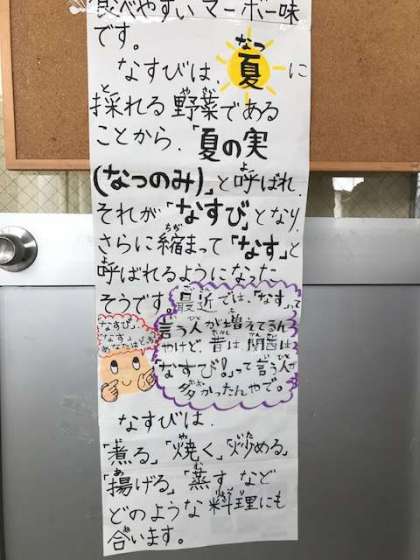 食べやすいマーボー味
です。
なすびは、夏に
採れる野菜である
ことから、「夏の実
(なつのみ)」と呼ばれ、
それが「なすび」となり、
さらに縮まって「なす」と
呼ばれるようになった
そうです。
最近では、「なす」って
言う人が増えてるん
やけど、昔は、関西は
「なすび!」って言う人が
多かったんやで。
なすび?
なす?
あなたはどっち
なすびは、
「煮る」「焼く」「炒める」
「揚げる」「蒸す」など
どのような料理にも
合います。